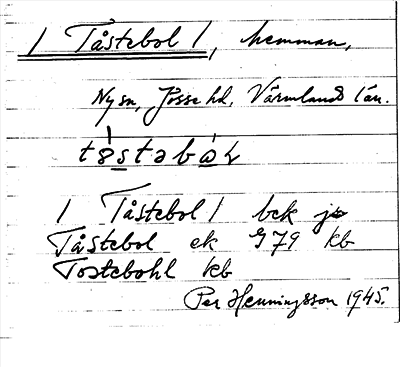 / Tåstebol /, hemman,
Ny sn, Jösse hd, Värmlands län.
/ Tåstebol / bek jo
Tåstebol ek G 79 kb
Tostebohl kb
Per Henningsson 1945.